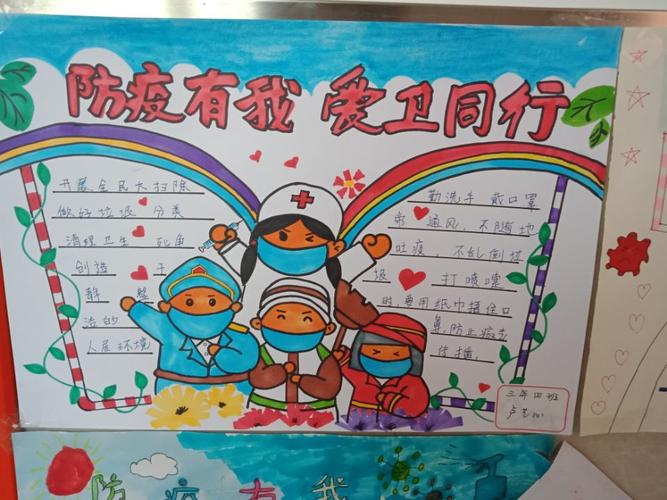 防疫有我 爱卫同行
开展全民大扫除
做好垃圾 分类
清理卫生 死角
创造 干
静 整
洁的
人居环境
勤洗手 戴口罩
常 通风,不随地
吐痰,不乱倒垃
圾 打喷嚏
时,要用纸巾捂住口
鼻,防止病毒
传播.
三年四班
防疫有我